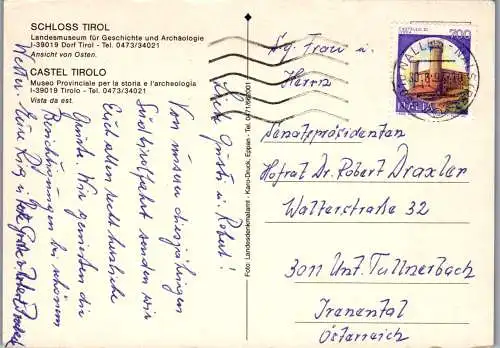 SCHLOSS TIROL
Landesmuseum für Geschichte und Archäologie
I-39019 Dorf Tirol - Tel. 0473/34021
Ansicht von Osten.
CASTEL TIROLO
Museo Provinciale per la storia e l'archeologia
I-39019 Tirolo - Tel. 0473/34021
Vista da est.
Liebe Gusti u. Robert!
Von unserer diesjährigen
Südtirolfahrt senden wir
Euch allen recht herzliche
Grüße. Wir genießen die
Besichtigungen bei schönem
Wetter. Eure
Foto Landesdenkmalamt - Karo-Druck, Eppan - Tel. 0471/
700
ITALIA
Sg. Frau u.
Herrn
Senatspräsidenten
Hofrat Dr. Robert Draxler
Walterstraße 32
3011 Unt. Tullnerbach
Irenental
Österreich